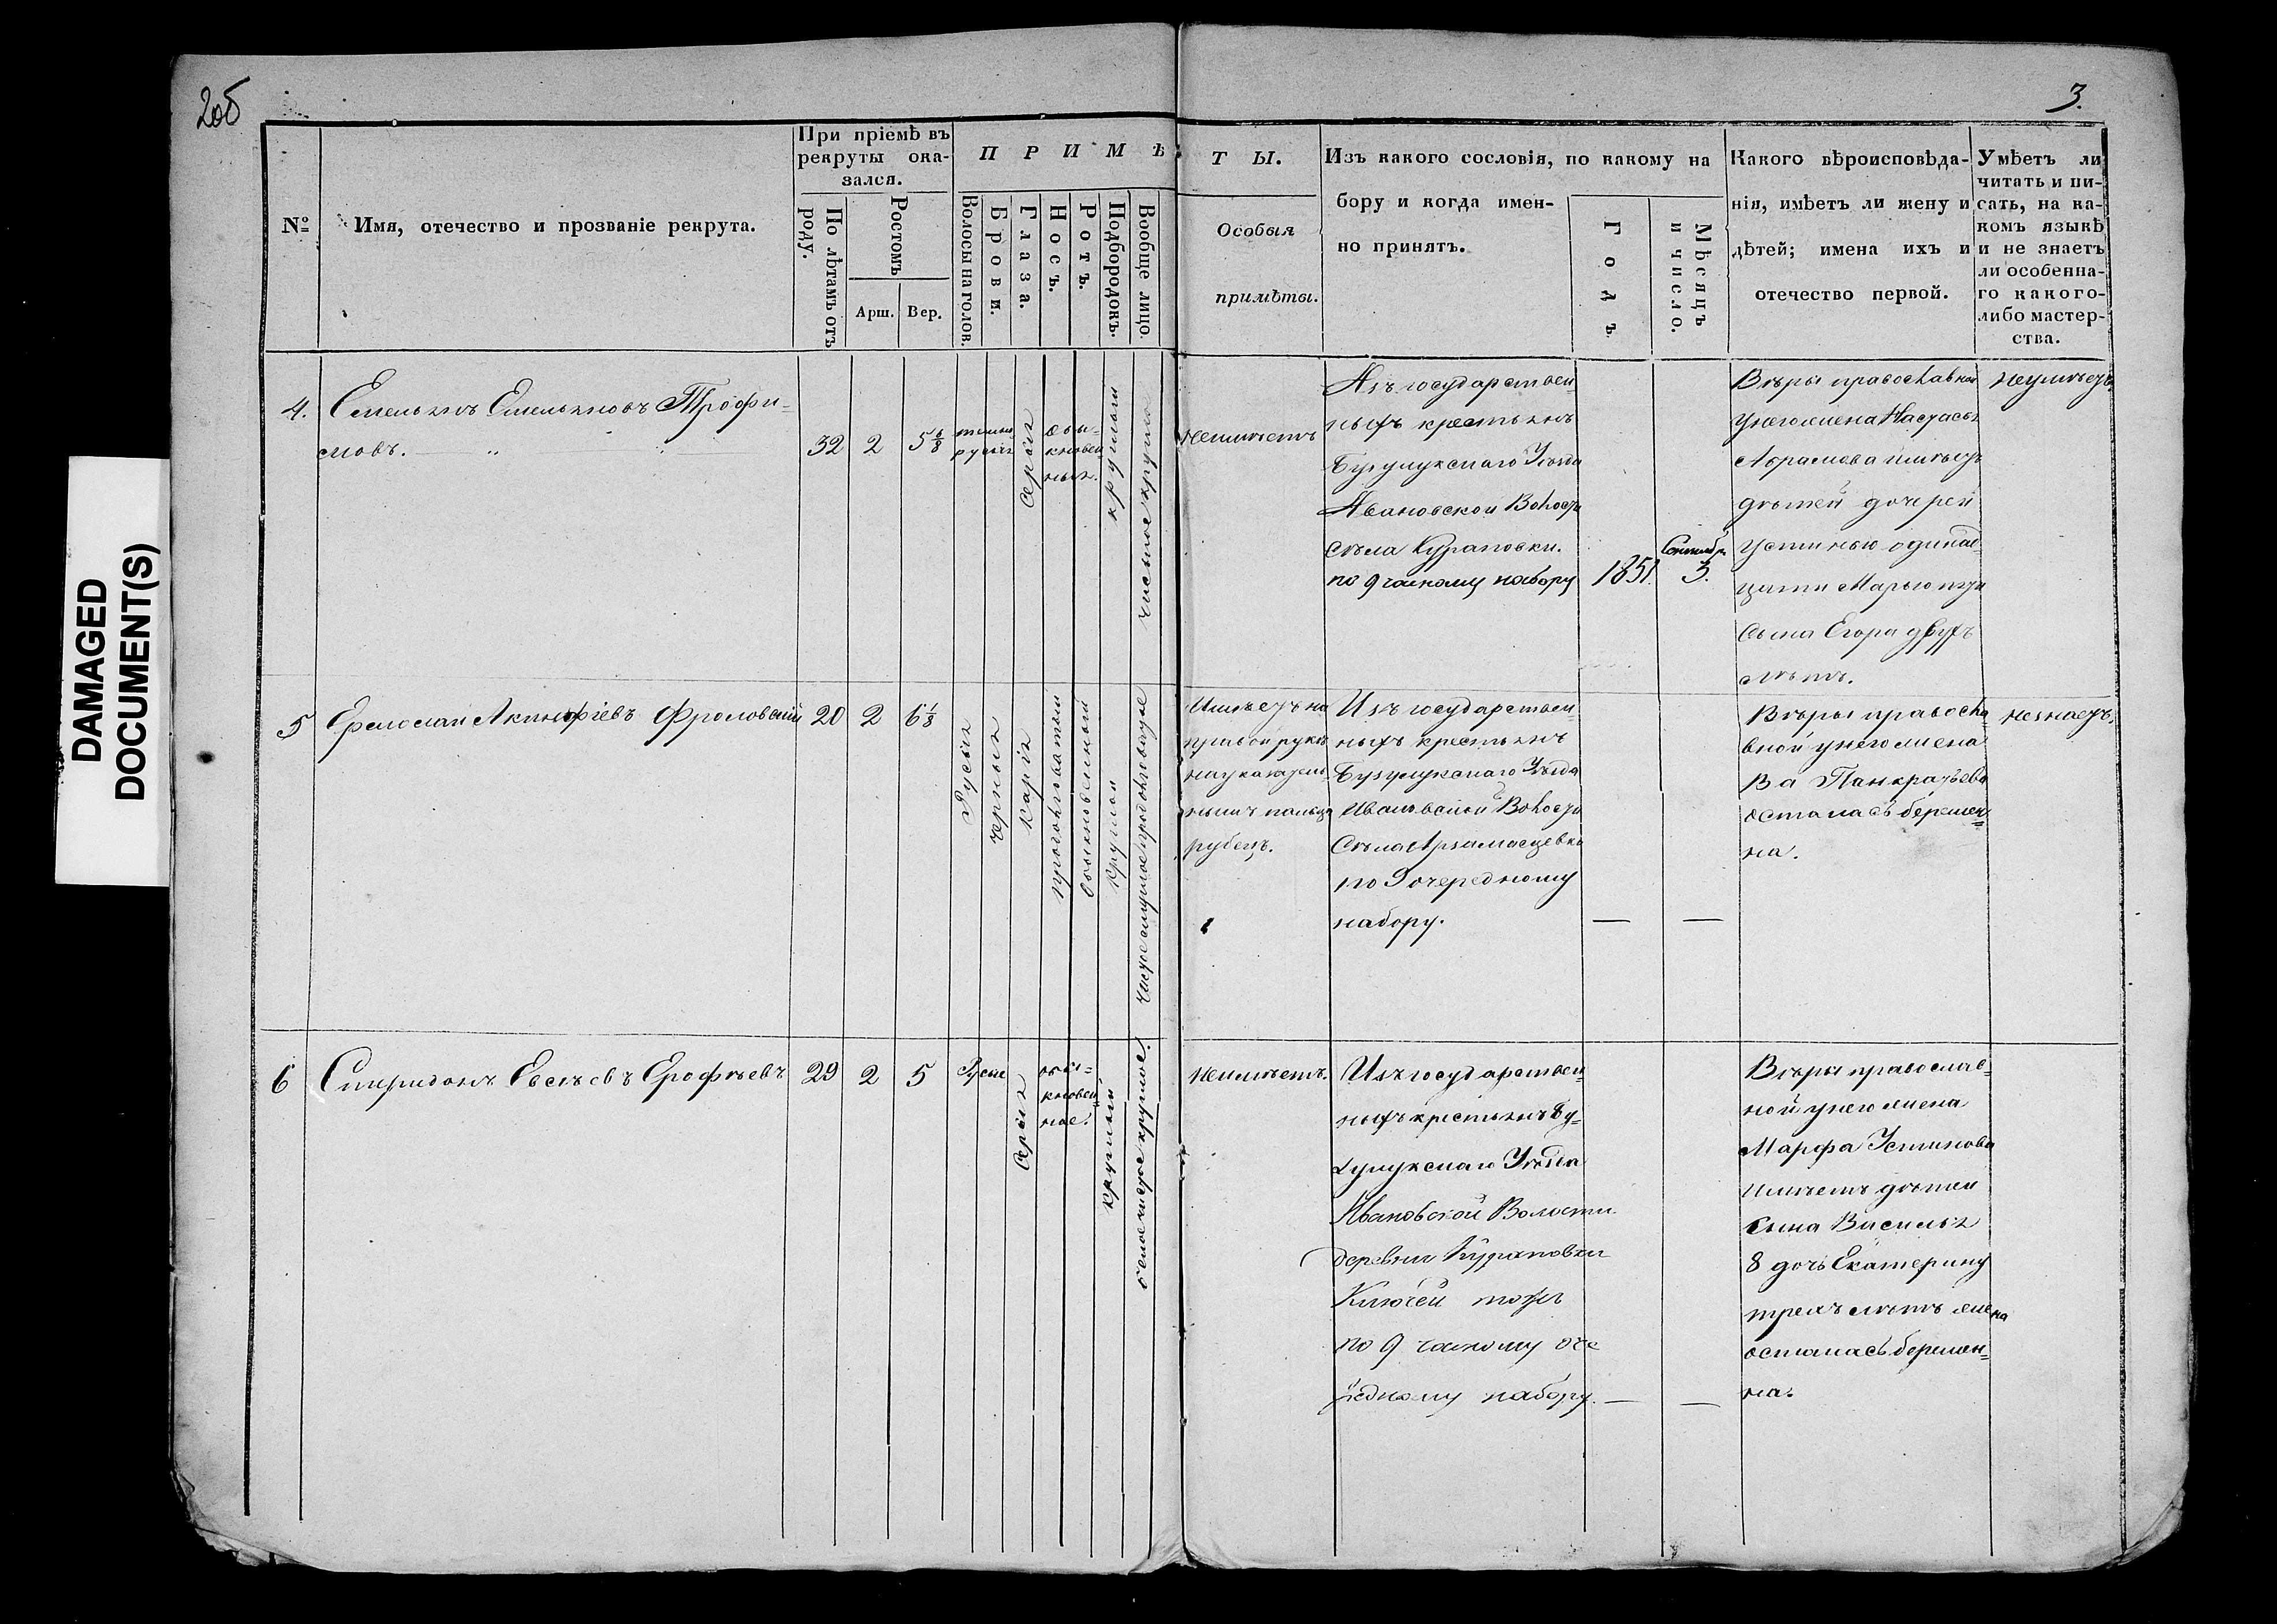 2об
3.
DAMAGED
DOCUMENT(S)
№
Имя, отечество и прозваніе рекрута.
При пріемѣ въ
рекруты ока-
зался.
По лѣтамъ отъ
роду.
Ростомъ
Арш.
Вер.
ПРИМѢ
Волосы на голов.
Брови.
Глаза.
Носъ.
Ротъ.
Подбородокъ.
Вообще лицо.
ТЫ.
Особыя
примѣты.
Изъ какого сословія, по какому на
бору и когда имен-
но принятъ.
Годъ.
Мѣсяцъ
и число.
Какого вѣроисповѣда-
нія, имѣетъ ли жену и
дѣтей; имена ихъ и
отечество первой.
Умѣетъ ли
читать и пи-
сать, на ка-
комъ языкѣ
и не знаетъ
ли особенна-
го какого-
либо мастер-
ства.
4.
Емельянъ Емельяновъ Трофи=
мовъ.
32
2
5 6/8
темно
русыя
серыя
обы-
кновен
ныя.
круглый
чистое круглое
Неимѣетъ
Изъ государствен
ныхъ крестьянъ
Бузулукскаго Уѣзда
Ивановской Волости
Сѣла Кураповки.
по 9 частному набору
1851.
Сентябр.
3.
Вѣры православной
У него жена Настасья
Абрамова имѣетъ
дѣтей дочерей
Устинью одинад=
цати Марью пяти
Сына Егора двухъ
лѣтъ.
Неумѣетъ
5
Ермолай Акинфіевъ Фроловскій
20
2
6 1/8
Русыя
черныя
карія
продолговатый
обыкновенный
круглой
чистое смуглое продолговатое
Имѣетъ на
правой рукѣ
на указатель
номъ пальцѣ
рубецъ.
Изъ государствен=
ныхъ крестьянъ
Бузулукскаго Уѣзда
Ивановской Волости
Сѣла Арзамасцевки
по 9 очередному
набору.
—
—
Вѣры правосла
вной у него жена
Панкратьева
осталась беремен=
на.
Незнаетъ.
6
Спиридонъ Евсѣевъ Ерофѣевъ
29
2
5
Русые
серыя
обы=
кновен=
ное.
круглый
белое чистое круглое.
Неимѣетъ.
Изъ государствен=
ныхъ крестьянъ Бу=
зулукскаго Уѣзда
Ивановской Волости
деревни Кураповки
Ключей тожъ
по 9 частному оче
редному набору.
—
—
Вѣры православ=
ной у него жена
Марфа Устинова
имѣетъ дѣтей
сына Василья
8 дочь Екатерину
трехъ лѣтъ жена
осталась беремен=
на.